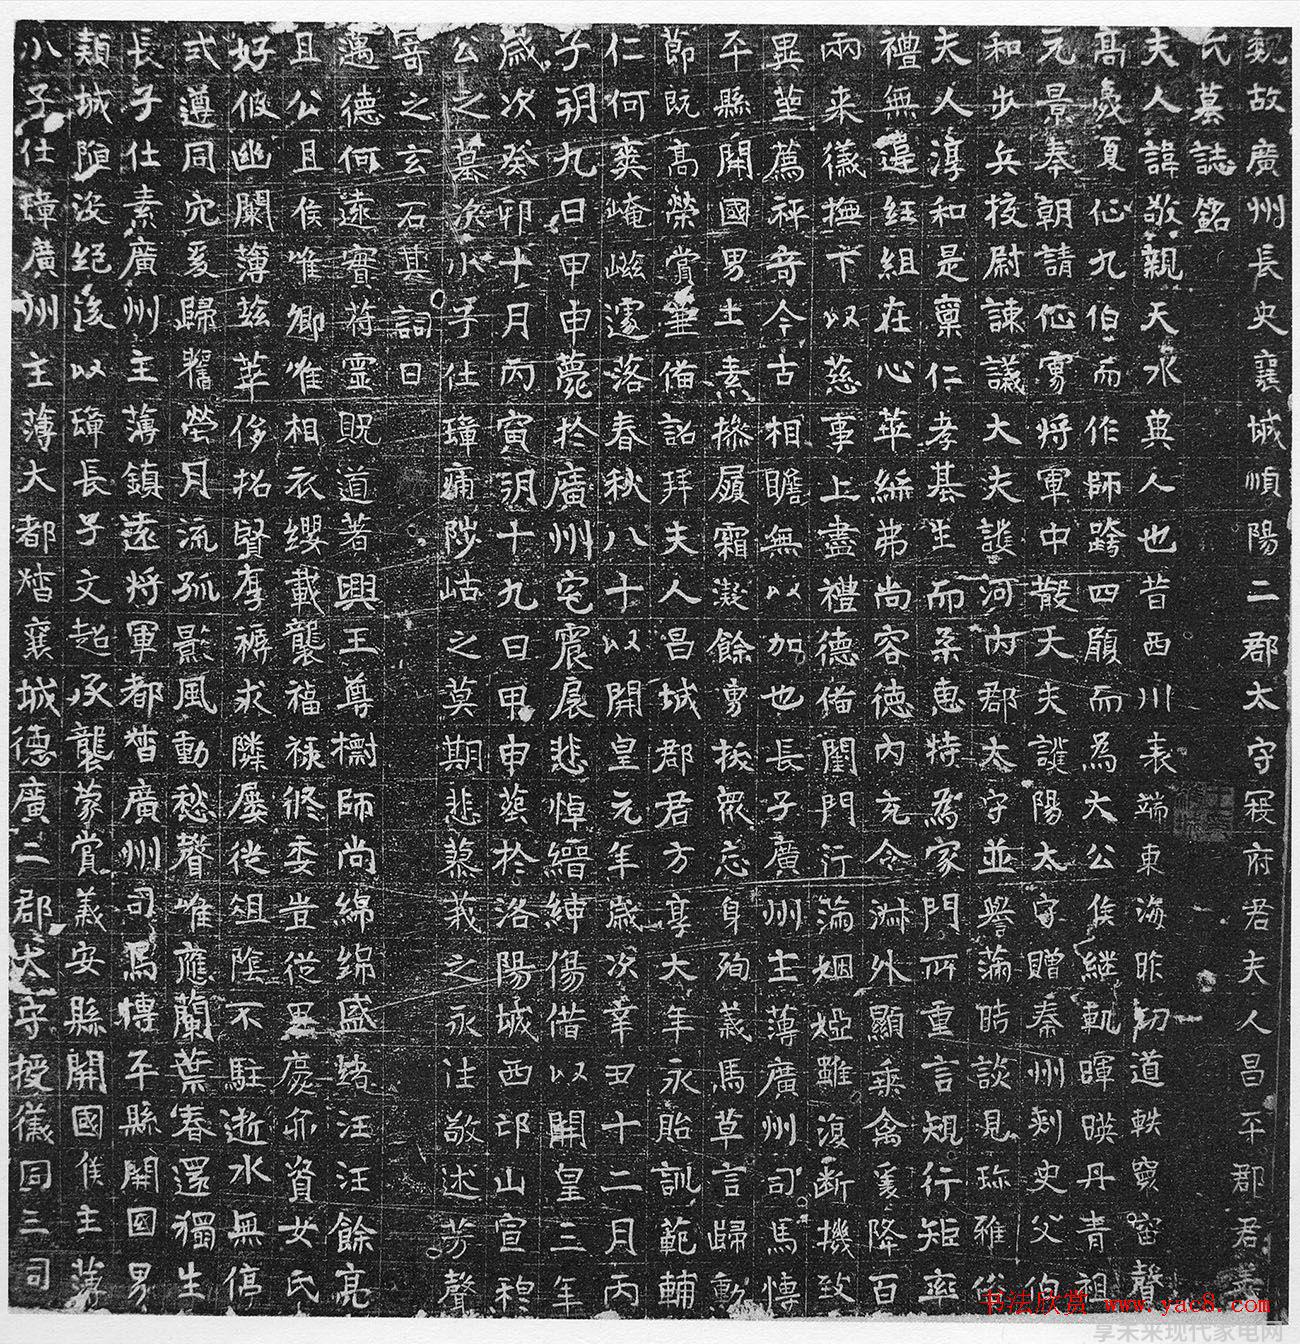 魏故廣州長史襄城順陽二郡太守寇府君夫人昌平郡君姜
氏墓誌銘
夫人諱敬親天水冀人也昔西川表端東海昨初道軼窮宙聲
高羲夏伾九伯而作師跨四履而為大公侯繼軌暉暎丹青祖
元景奉朝請伾寧將軍中散大夫譙陽太守贈秦州刺史父伯
和步兵挍尉諫議大夫譙河內郡太守並譽滿時談見珎雅俗
夫人淳和是稟仁孝基生而柔惠特為家門所重言規行矩率
禮無違紝組在心華綺弗尚容德內充令淑外顯乘禽爰降百
兩來儀撫下以慈事上盡禮德俻閨門行滿姻婭雖復斷機致
異莝薦秤奇今古相瞻無以加也長子廣州主薄廣州司馬慱
平縣開國男士素操履霜凝餘勇拔衆忘身殉義馬草言歸勳
節既高榮賞薑俻詔拜夫人昌城郡君方享大年永貽訓範輔
仁何爽崦嵫遽落春秋八十以開皇元年歲次辛丑十二月丙
子朔九日甲申薨於廣州宅宸扆悲悼縉紳傷借以開皇三年
歲次癸卯十月丙寅朔十九日甲申葬於洛陽城西邙山宣穆
公之墓次小子仕璋痛陟岵之莫期悲蓼莪之永往敬述芳聲
寄之玄石其詞曰
邁德何遠寶符靈貺道著興王尊檦師尚綿綿盛緒汪汪餘亮
且公且侯唯卿唯相衣纓載襲福祿終委豈從思慶亦資女氏
好仇幽闌薄玆華侈招賢厚褥求隣屢徙俎隂不駐逝水無停
式遵同穴爰歸舊塋月流孤影風動愁聲唯應蘭葉春還獨生
長子仕素廣州主薄鎮遠將軍都督廣州司馬慱平縣開國男
穎城陌没絕後以璋長子文超承襲蒙賞義安縣開國侯主薄
小子仕璋廣州主薄大都督襄城德廣二郡太守授儀同三司
書法欣赏 www.yac8.com